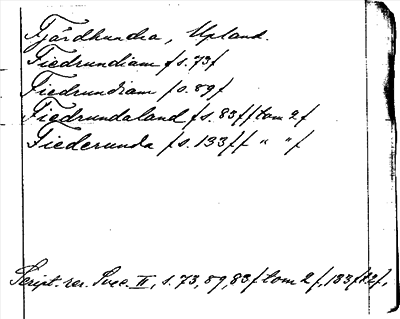 Fjärdhundra, Upland.
Fiedrundiam /s. 73/
Fiedrundiam /s. 89/
Fiedrundaland /s. 83 ff tom 2/
Fiederunda /s. 133 ff " "/
Script. rer. Svec. II, s. 73, 89, 83 f tom 2 f, 133 f t. 2 f,